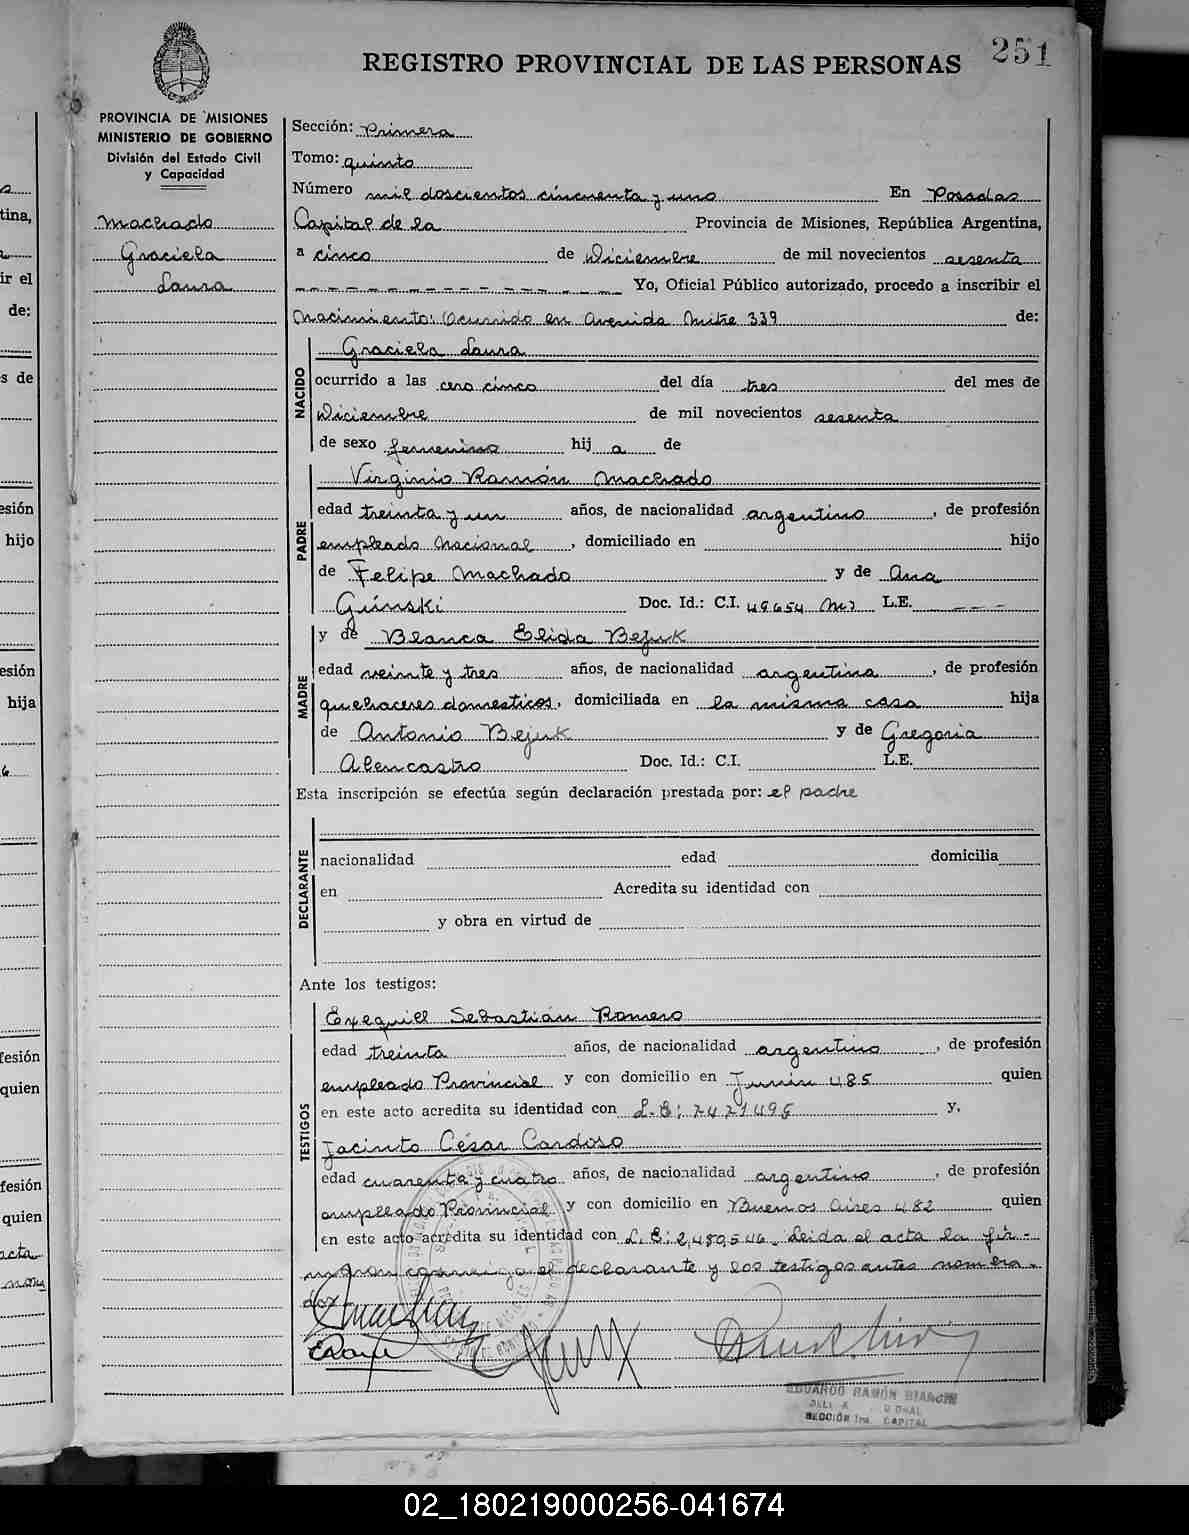 REGISTRO PROVINCIAL DE LAS PERSONAS
251
PROVINCIA DE MISIONES
MINISTERIO DE GOBIERNO
División del Estado Civil
y Capacidad
Machado
Graciela
Laura
Sección: Primera
Tomo: quinto
Número mil doscientos cincuenta y uno En Posadas
Capital de la Provincia de Misiones, República Argentina,
a cinco de Diciembre de mil novecientos sesenta
Yo, Oficial Público autorizado, procedo a inscribir el
Nacimiento: Ocurrido en Avenida Mitre 339 de:
NACIDO
Graciela Laura
ocurrido a las cero cinco del día tres del mes de
Diciembre de mil novecientos sesenta
de sexo femenino hij a de
PADRE
Virginio Ramón Machado
edad treinta y un años, de nacionalidad argentino, de profesión
empleado Nacional, domiciliado en hijo
de Felipe Machado y de Ana
Doc. Id.: C.I. 49654 L.E. ---
MADRE
y de Blanca Elida Bejuk
edad veinte y tres años, de nacionalidad argentina, de profesión
quehaceres domesticos, domiciliada en la misma casa hija
de Antonio Bejuk y de Gregoria
Alencastro Doc. Id.: C.I. L.E.
Esta inscripción se efectúa según declaración prestada por: el padre
DECLARANTE
nacionalidad edad domicilia
en Acredita su identidad con
y obra en virtud de
Ante los testigos:
TESTIGOS
Exequiel Sebastián Romero
edad treinta años, de nacionalidad argentino, de profesión
empleado Provincial y con domicilio en Junin 485 quien
en este acto acredita su identidad con L.E: 7471495 y,
Jacinto César Cardoso
edad cuarenta y cuatro años, de nacionalidad argentino, de profesión
empleado Provincial y con domicilio en Buenos Aires 482 quien
en este acto acredita su identidad con L.E: 2,480,546. Leida el acta la fir-
man conmigo el declarante y los testigos antes nombra-
dos-
EDUARDO RAMÓN BIANCHI
SECCIÓN 1ra. CAPITAL
tina,
ir el
de:
s de
esión
hijo
esión
hija
fesión
quien
fesión
quien
acta
02_180219000256-041674